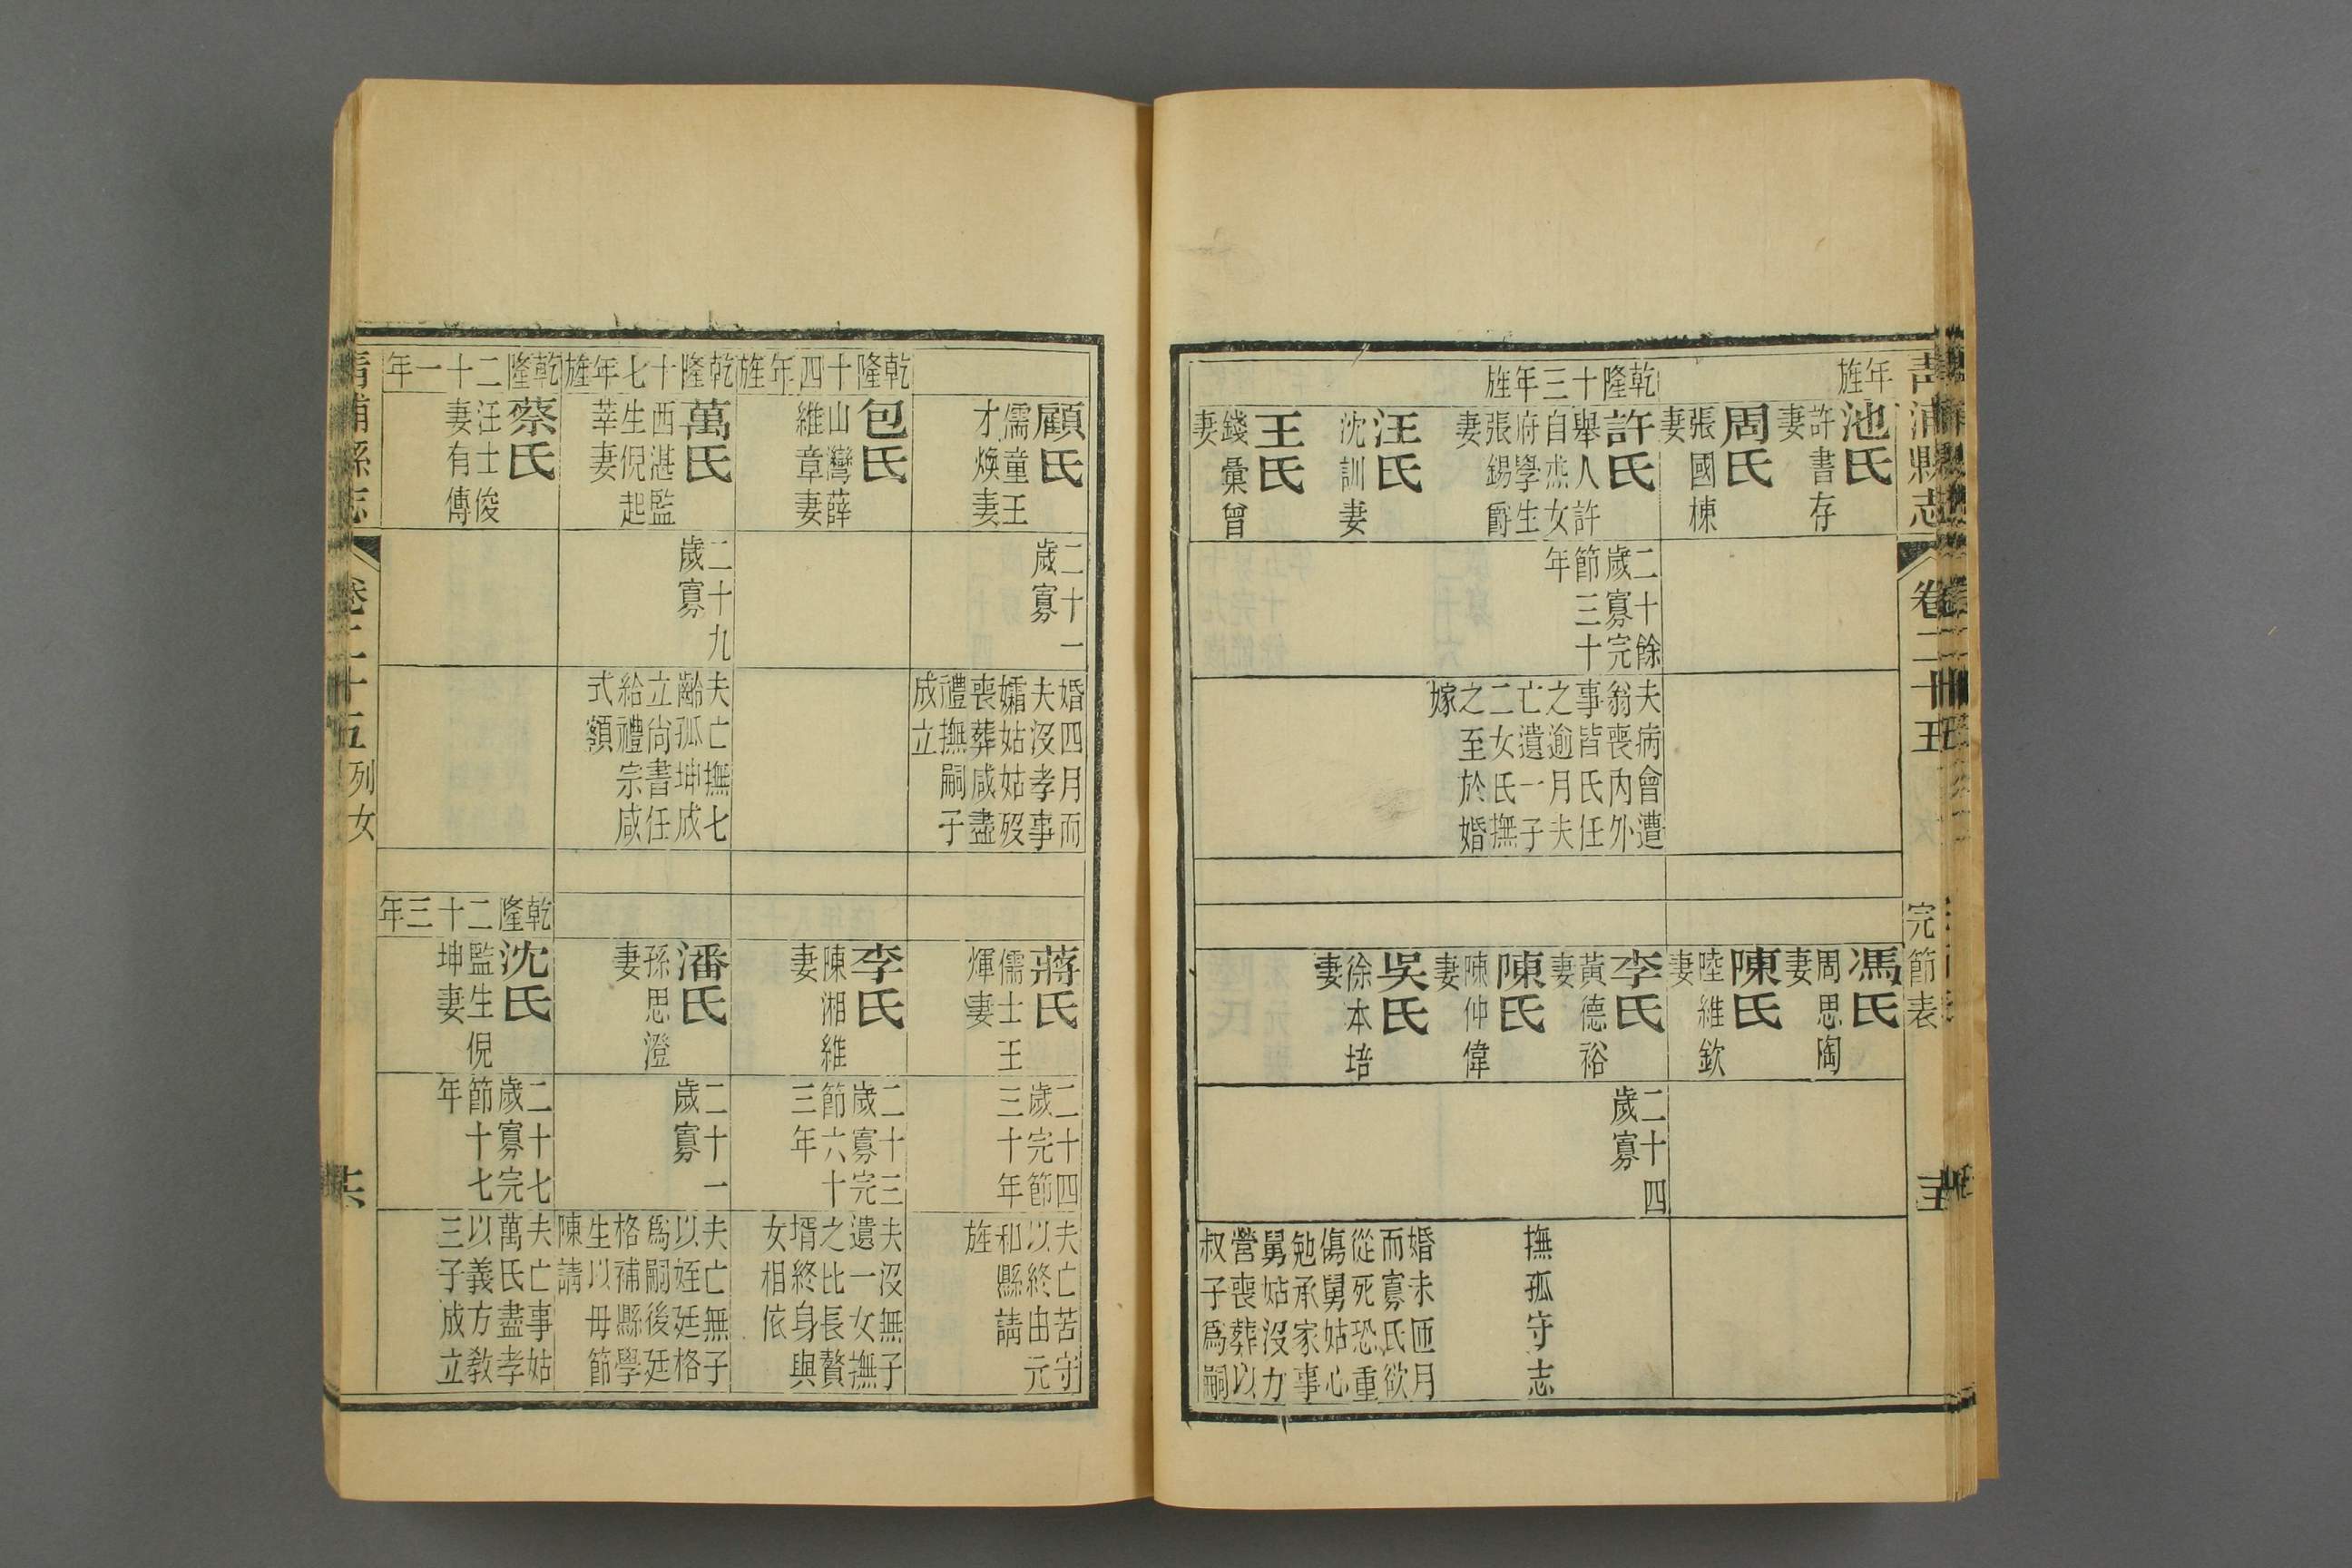 青浦縣志
卷二十五
完節表
年旌
池氏
許書存
妻
周氏
張國棟
妻
乾隆十三年旌
許氏
舉人許
自焘女
府學生
張錫爵
妻
二十餘
歲寡完
節三十
年
夫病會遭
翁喪內外
事皆氏任
之逾月夫
亡遺一子
二女氏撫
之至於婚
嫁
汪氏
沈訓妻
王氏
錢彙曾
妻
馮氏
周思陶
妻
陳氏
陸維欽
妻
李氏
黃德裕
妻
二十四
歲寡
陳氏
陳仲偉
妻
撫孤守志
吳氏
徐本培
妻
婚未匝月
而寡氏欲
從死恐重
傷舅姑心
勉承家事
舅姑沒力
營喪葬以
叔子爲嗣
顧氏
儒童王
才煥妻
二十一
歲寡
婚四月而
夫沒孝事
孀姑姑歿
喪葬咸盡
禮撫嗣子
成立
乾隆十四年旌
包氏
山灣薛
維章妻
乾隆十七年旌
萬氏
西湛監
生倪起
莘妻
二十九
歲寡
夫亡撫七
齡孤坤成
立尙書任
給禮宗咸
式額
乾隆二十一年
蔡氏
汪士俊
妻有傳
蔣氏
儒士王
煇妻
二十四
歲完節
三十年
夫亡苦守
以終由元
和縣請
旌
李氏
陳湘維
妻
二十三
歲寡完
節六十
三年
夫沒無子
遺一女撫
之比長贅
壻終身與
女相依
潘氏
孫思澄
妻
二十一
歲寡
夫亡無子
以姪廷格
爲嗣後廷
格補縣學
生以母節
陳請
乾隆二十三年
沈氏
監生倪
坤妻
二十七
歲寡完
節十七
年
夫亡事姑
萬氏盡孝
以義方教
三子成立
青浦縣志
卷二十五
列女